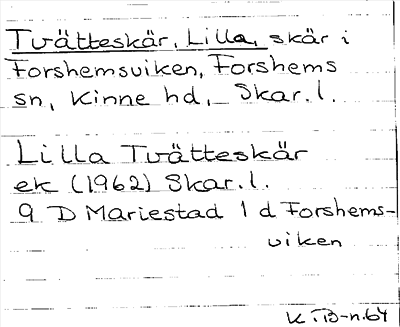 Tvätteskär, Lilla, skär i
Forshemsviken, Forshems
sn, Kinne hd, Skar.l.
Lilla Tvätteskär
ek (1962) Skar.l.
9 D Mariestad 1 d Forshems-
viken
K.TB-n.64